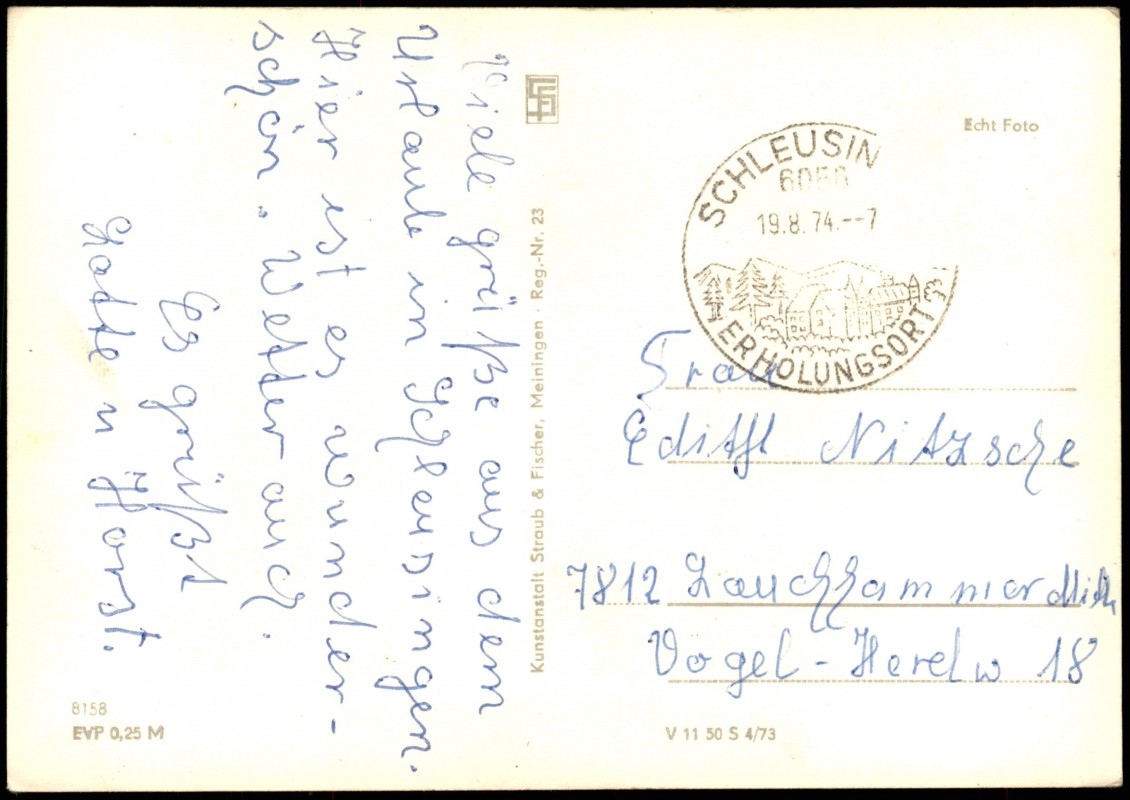 Viele grüße aus dem
Urlaub in Schleusingen.
Hier ist es wunder-
schön. Wetter auch.
Es grüßt
Lotte u Horst.
8158
EVP 0,25 M
Kunstanstalt Straub & Fischer, Meiningen · Reg.-Nr. 23
Echt Foto
SCHLEUSIN
19.8.74.--7
ERHOLUNGSORT
Frau
Edith Nitzsche
7812 Lauchhammer
Vogel- 18
V 11 50 S 4/73